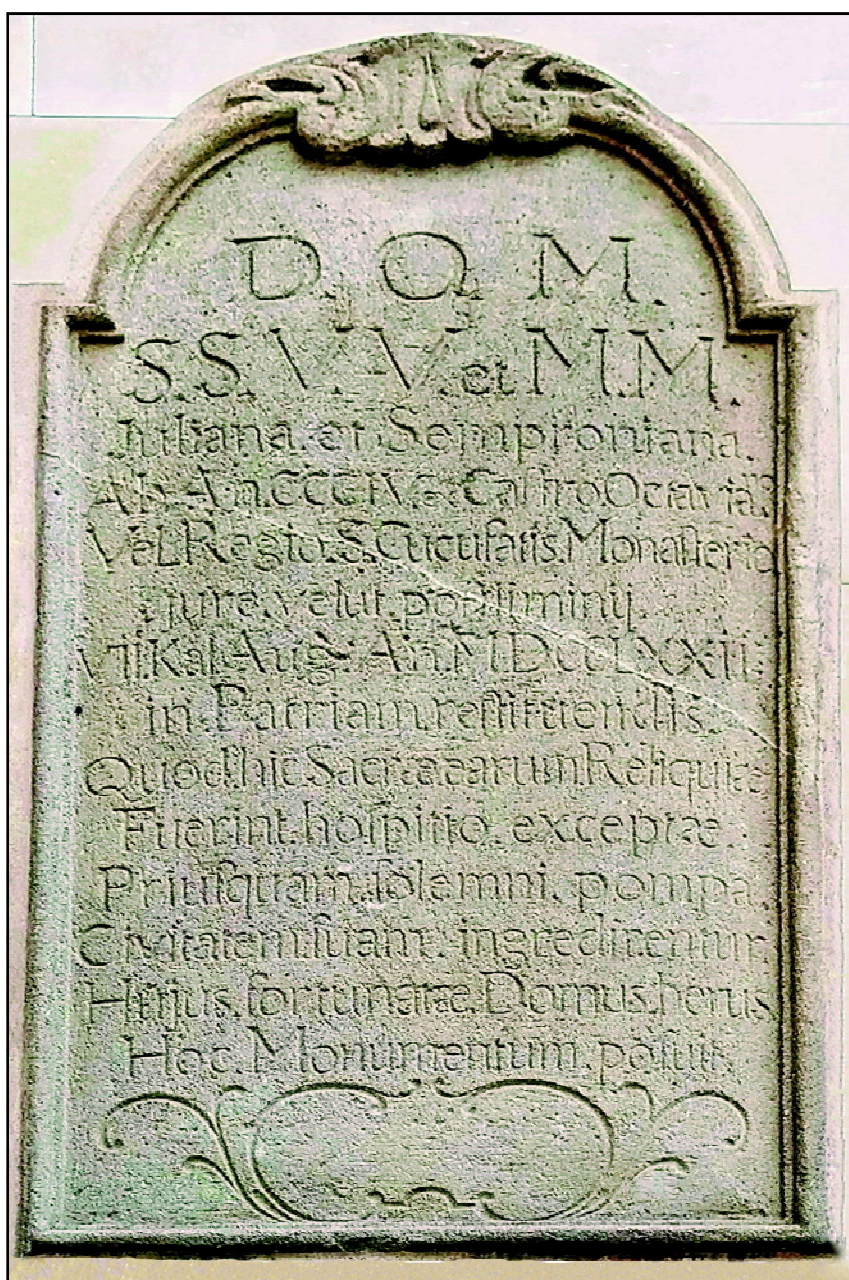 D. O. M.
S. S. V. V. et M. M.
Juliana. et Semproniana.
Ab. An. CCCIV. Castro Octavia.
Vel. Regio. S. Cucufatis. Monaſterio
jure. velut. poſtliminij
VII. Kal. Aug. An. M.DCCLXXII.
in Patriam. reſtituendis.
Quod. hic Sacræ earum. Reliquiæ
Fuerint. hoſpitio. exceptæ.
Priuſquam. ſolemni. pompa.
Civitatem. ſuam. ingrederentur
Hujus. fortunatæ. Domus. herus
Hoc. Monumentum. poſuit.